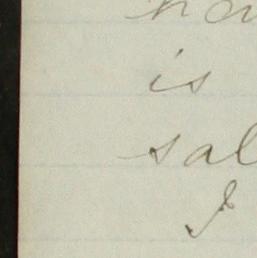 is
sal
I